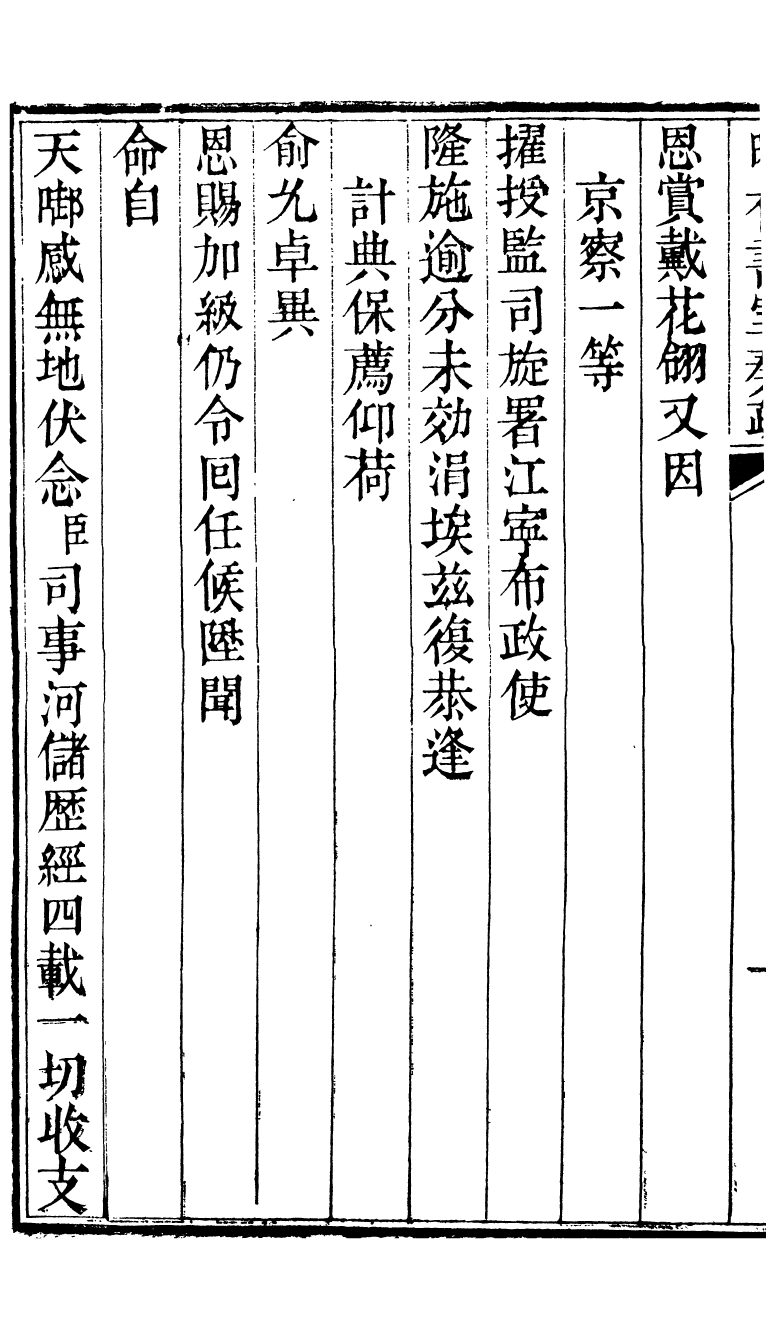 恩賞戴花翎又因
京察一等
擢授監司旋署江寧布政使
隆施逾分未効涓埃茲復恭逢
計典保薦仰荷
俞允卓異
恩賜加級仍令回任候陞聞
命自
天啣感無地伏念臣司事河儲歷經四載一切收支